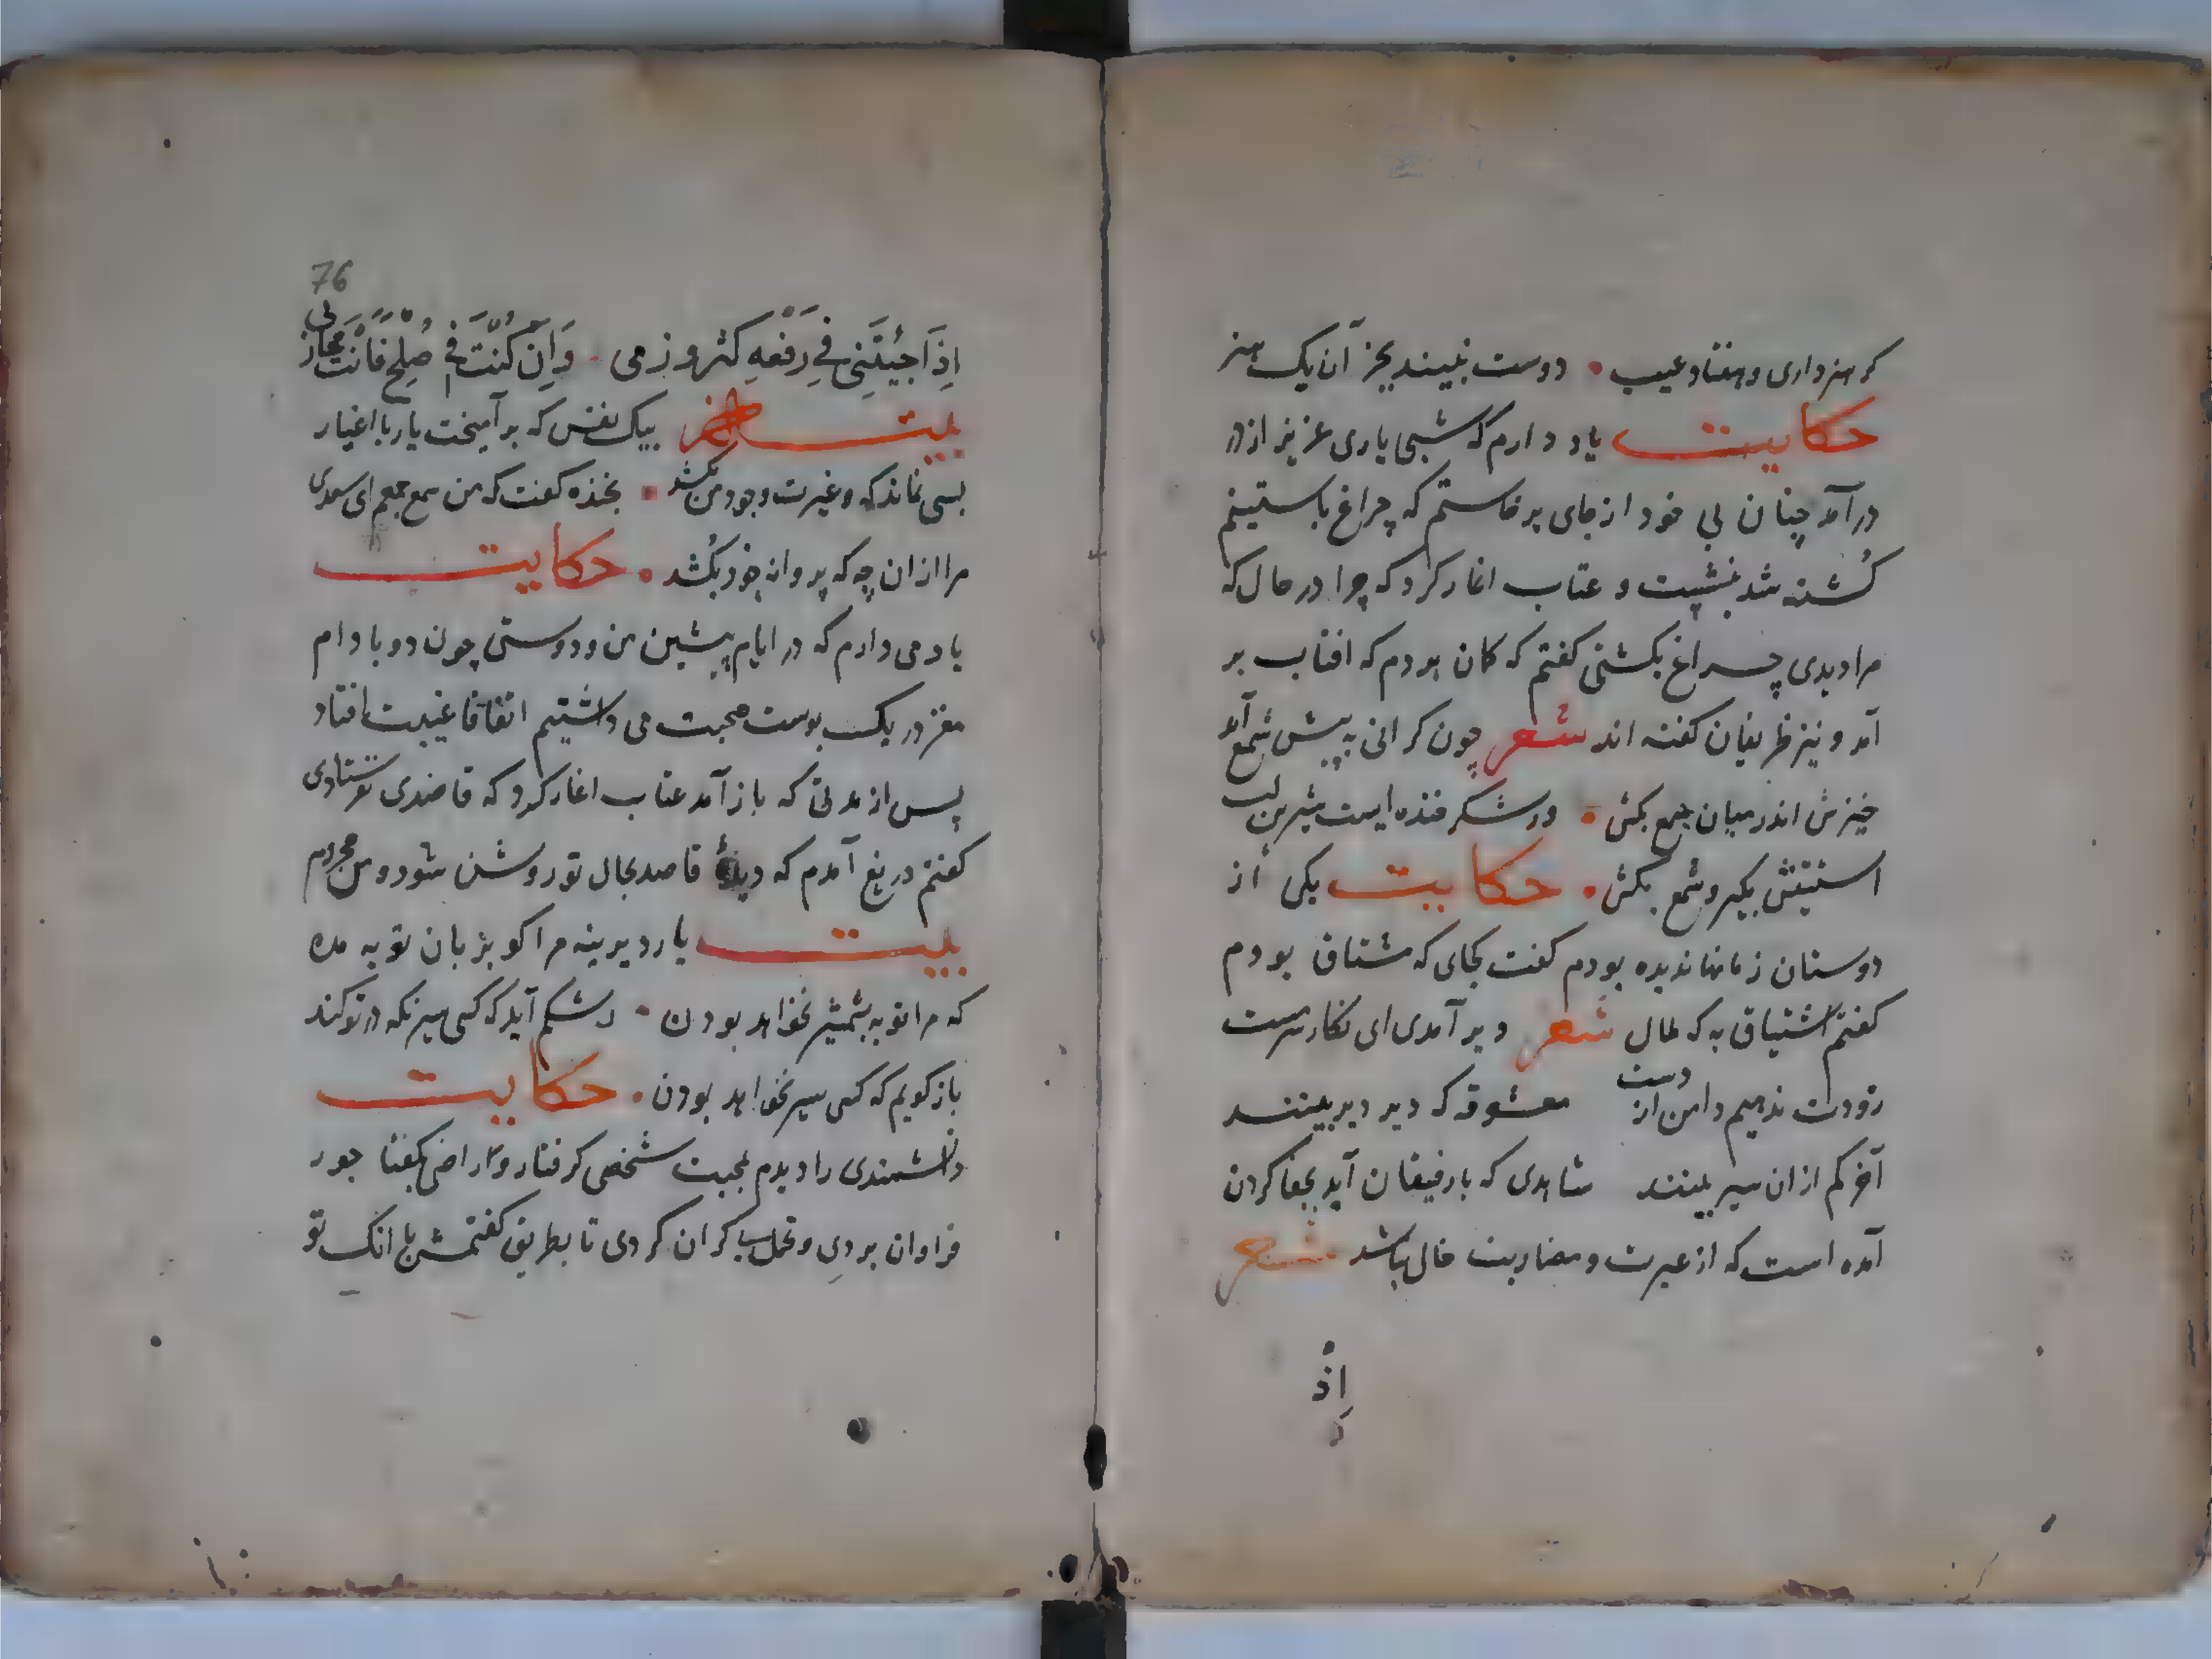 کر هنر داری و هفتاد عیب • دوست نبیند بجز آن یک هنر
حکایت یاد دارم که شبی یاری عزیز از در
در آمد چنان بی خود از جای بر خاستم که چراغ باستینم
کُشته شد بنشست و عتاب اغاز کرد که چرا در حال که
مرا دیدی چراغ بکشتی کفتم که کمان بردم که افتاب بر
آمد و نیز ظریفان کفته اند شعر چون کرانی به پیش شمع آمد
خیزش اندر میان جمع بکش • ور شکر خنده ایست شیرین لب
استینش بکیر و شمع بکش • حکایت یکی از
دوستان زمانها ندیده بودم کفت کجای که مشتاق بودم
کفتم اشتیاق به که ملال شعر دیر آمدی ای نکار سرمست
زودت ندهیم دامن از دست معشوقه که دیر دیر بینند
آخر کم از ان سیر بینند شاهدی که با رفیقان آید بجفا کردن
آمده است که از غیرت و مضادت خالی باشد شعر
اِذْ
76
اِذَا جِئْتَنِی فِی رَفْعَهِ کثروزمی • وَاِنْ کُنْتَ فِی صُلْحٍ فَاَنْتَ مُحَارِ بی
بیت بیک نفس که بر آمیخت یار با اغیار
بسی نماند که و غیرت وجود من بکشد • بخنده کفت که من شمع جمعم ای سعدی
مرا از ان چه که پروانه خود بکُشد • حکایت
یاد می دارم که در ایام پیشین من و دوستی چون دو بادام
مغز در یک پوست صحبت می داشتیم اتفاقا غیبت افتاد
پس از مدتی که باز آمد عتاب اغاز کرد که قاصدی نفرستادی
کفتم دریغ آمدم که دیدهٔ قاصد بجمال تو روشن شود و من محروم
بیت یار دیرینه مرا کو بزبان توبه مده
که مرا توبه بشمشیر نخواهد بودن • رشکم آید که کسی سیر نکه در تو کند
باز کویم که کسی سیر نخواهد بودن • حکایت
دانشمندی را دیدم بمحبت شخصی کرفتار و راضی بکفتا جور
فراوان بردی و تحمل بی کران کردی تا بطریق کفتمش با انک تو